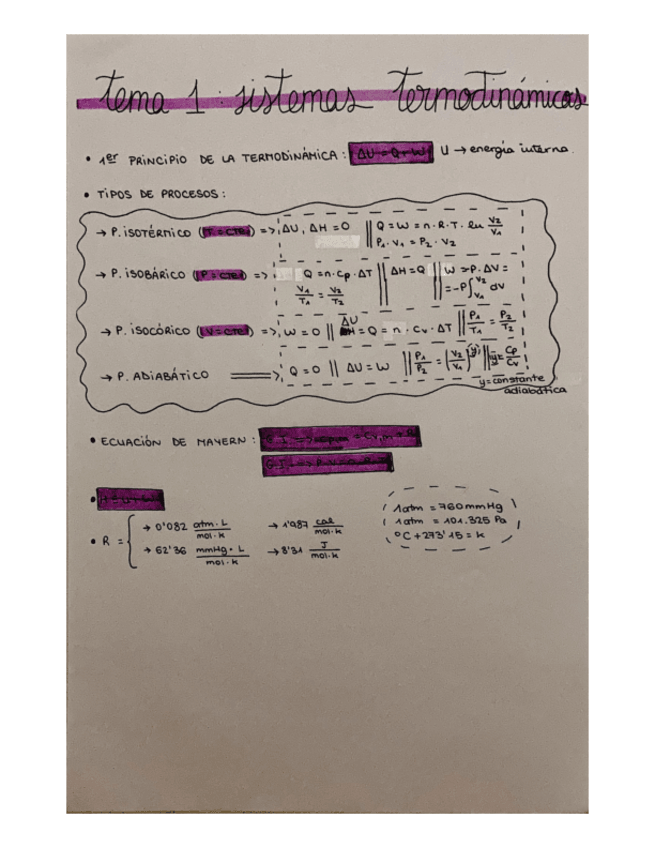 tema 1 : sistemas termodinámicos
• 1er PRINCIPIO DE LA TERMODINÁMICA : ΔU = Q + W U → energía interna.
• TIPOS DE PROCESOS :
→ P. ISOTÉRMICO (T = CTE) => ΔU, ΔH = 0 || Q = W = n · R · T · Ln V2/V1
P1 · V1 = P2 · V2
→ P. ISOBÁRICO (P = CTE) => Q = n · Cp · ΔT || ΔH = Q || W = P · ΔV =
V1/T1 = V2/T2 = -P ∫V1 V2 dV
→ P. ISOCÓRICO (V = CTE) => W = 0 || ΔU = Q = n · Cv · ΔT || P1/T1 = P2/T2
→ P. ADIABÁTICO => Q = 0 || ΔU = W || P1/P2 = (V2/V1)^y || y = Cp/Cv
y = constante
adiabática
• ECUACIÓN DE MAYERN :
• R = { → 0'082 atm · L / mol · k → 1'987 cal / mol · k
→ 62'36 mmHg · L / mol · k → 8'31 J / mol · k
1 atm = 760 mmHg
1 atm = 101.325 Pa
ºC + 273'15 = k